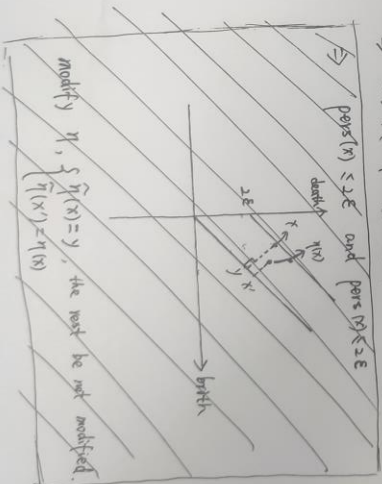 ⇒ pers(x) ≤ 2ε and pers(x) ≤ 2ε
death
2ε
x
η(x)
y x'
birth
modify η, { η̃(x) = y, the rest be not modified.
η̃(x') = η(x)